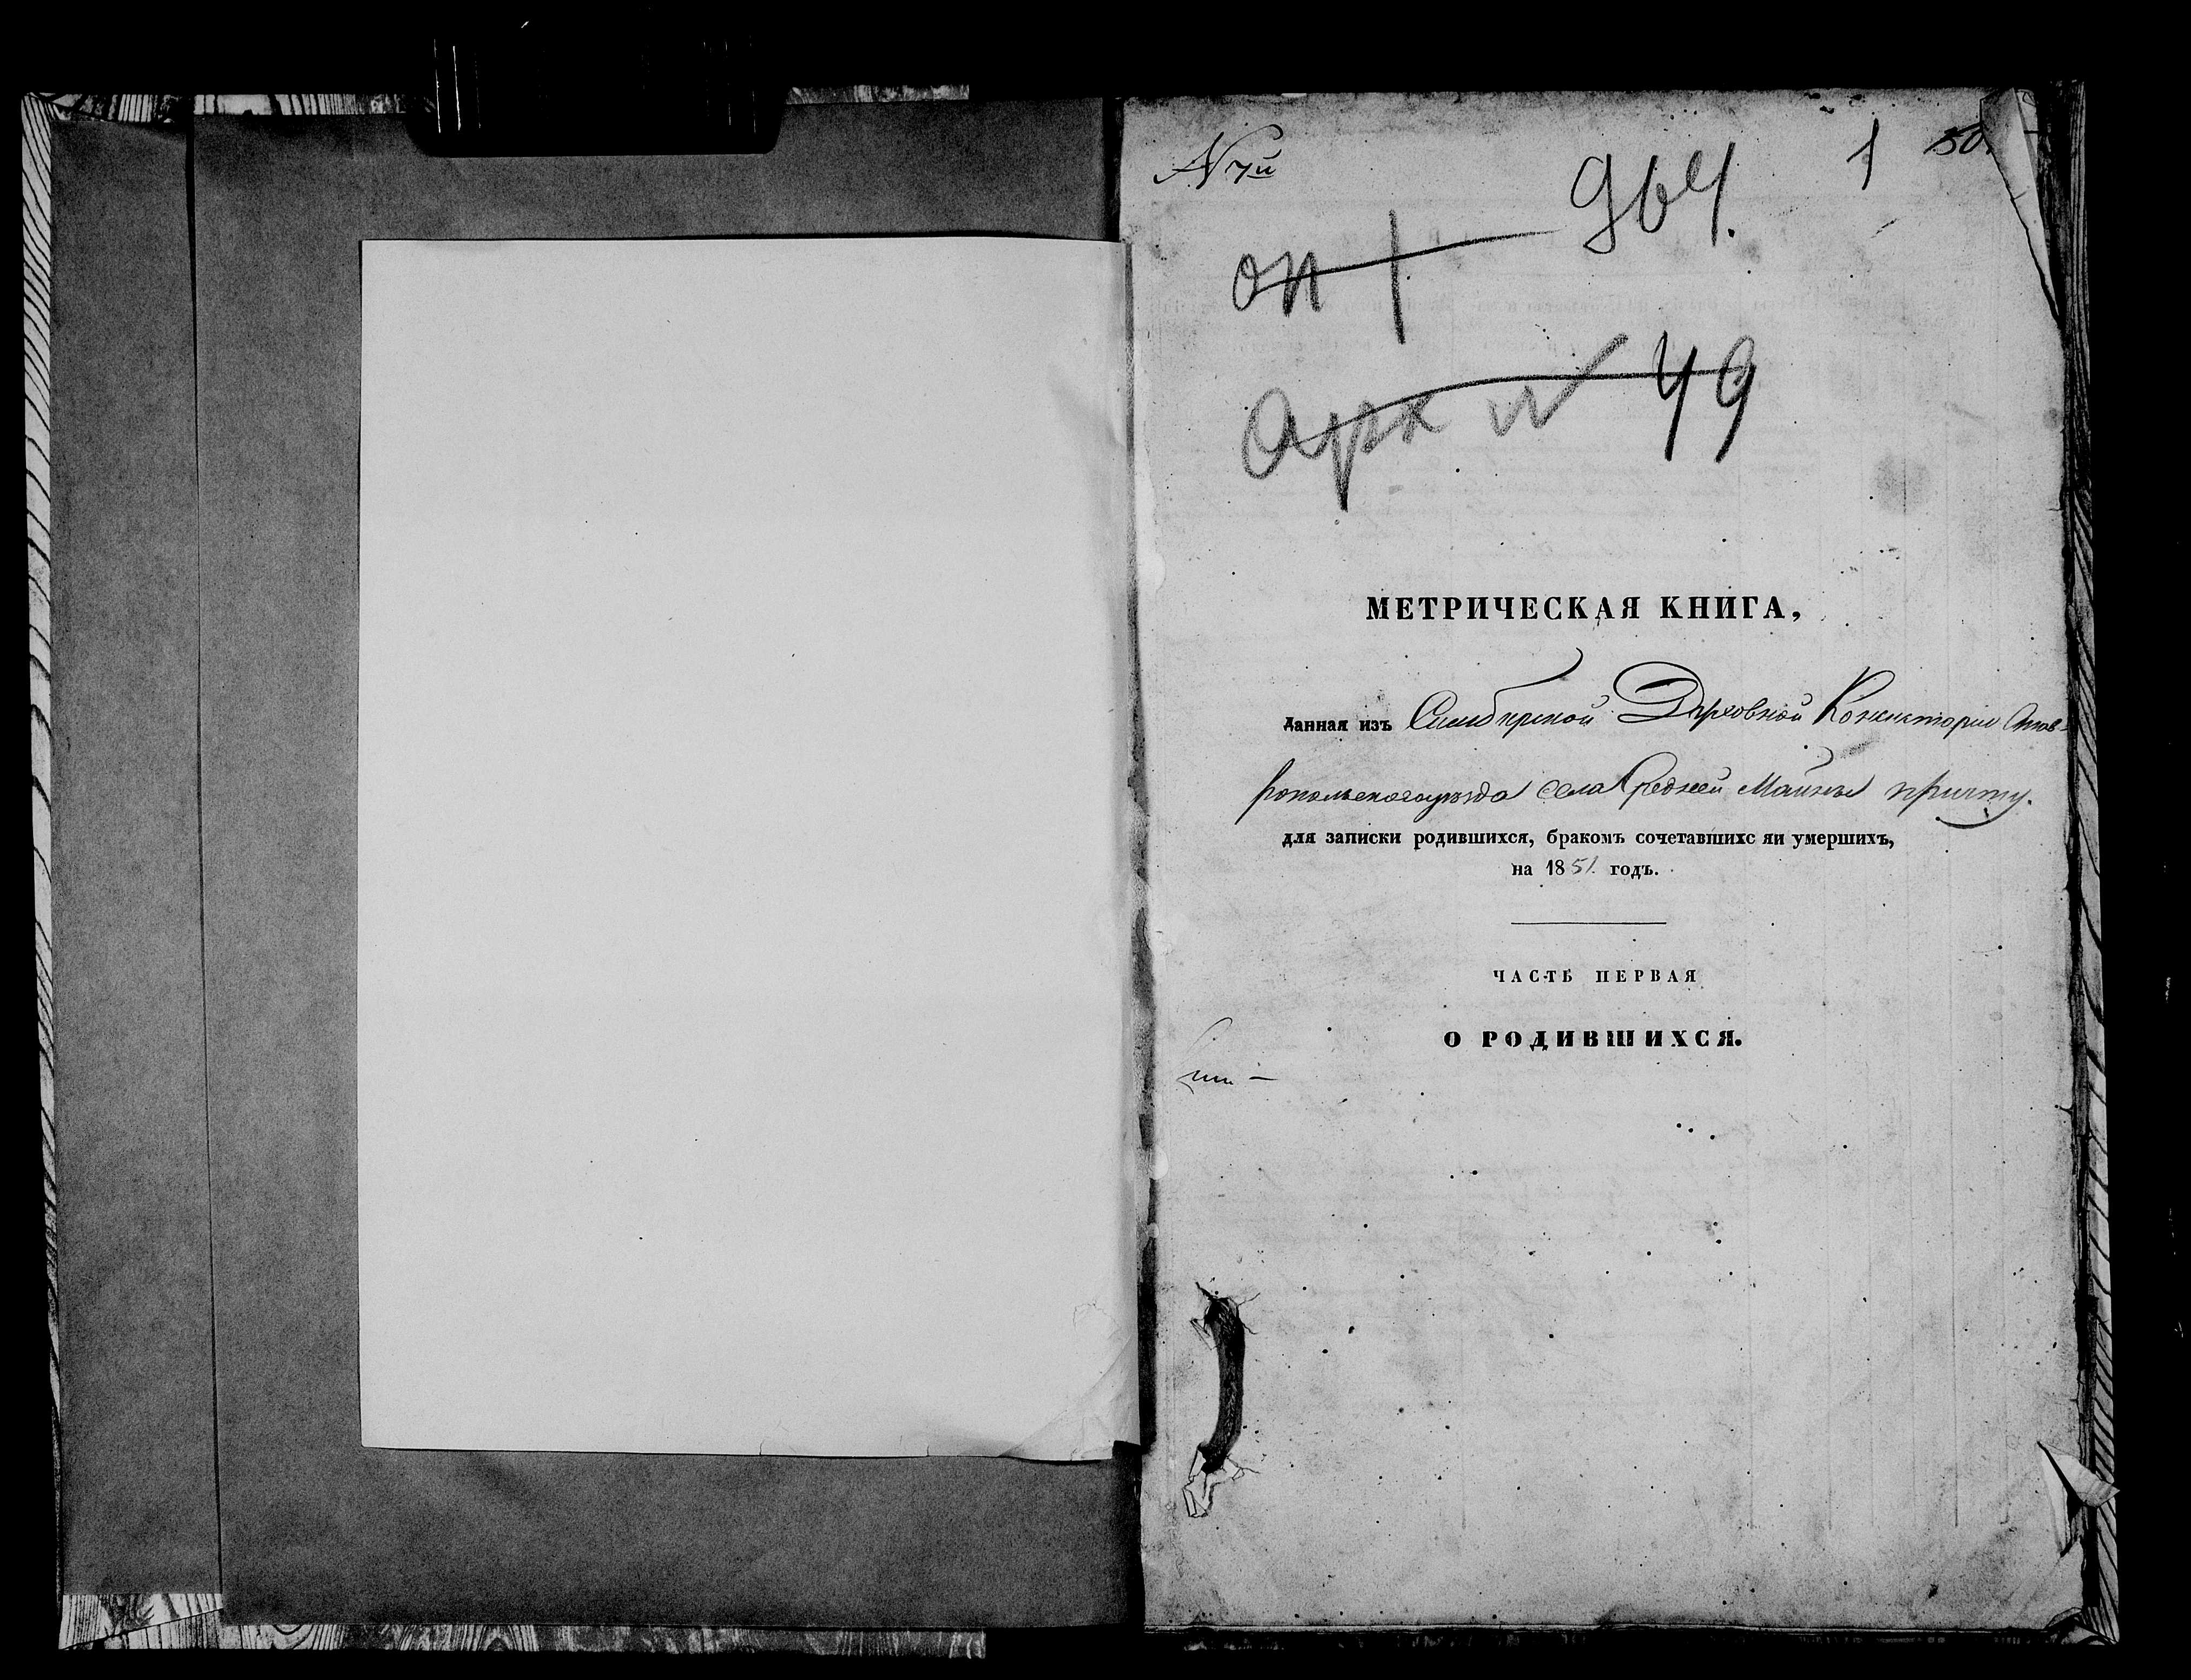 N 7й
1
50.
964.
оп 1
Арх № 49
МЕТРИЧЕСКАЯ КНИГА,
данная изъ Симбирской Духовной Консисторіи Став-
ропольскаго уѣзда села Средней Майны причту.
для записки родившихся, бракомъ сочетавшихс яи умершихъ,
на 1851. годъ.
ЧАСТЬ ПЕРВАЯ
О РОДИВШИХСЯ.